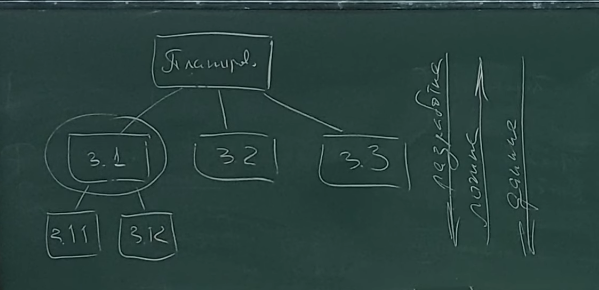 Планир.
3.1
3.2
3.3
3.11
3.12
разработка
логика
данные